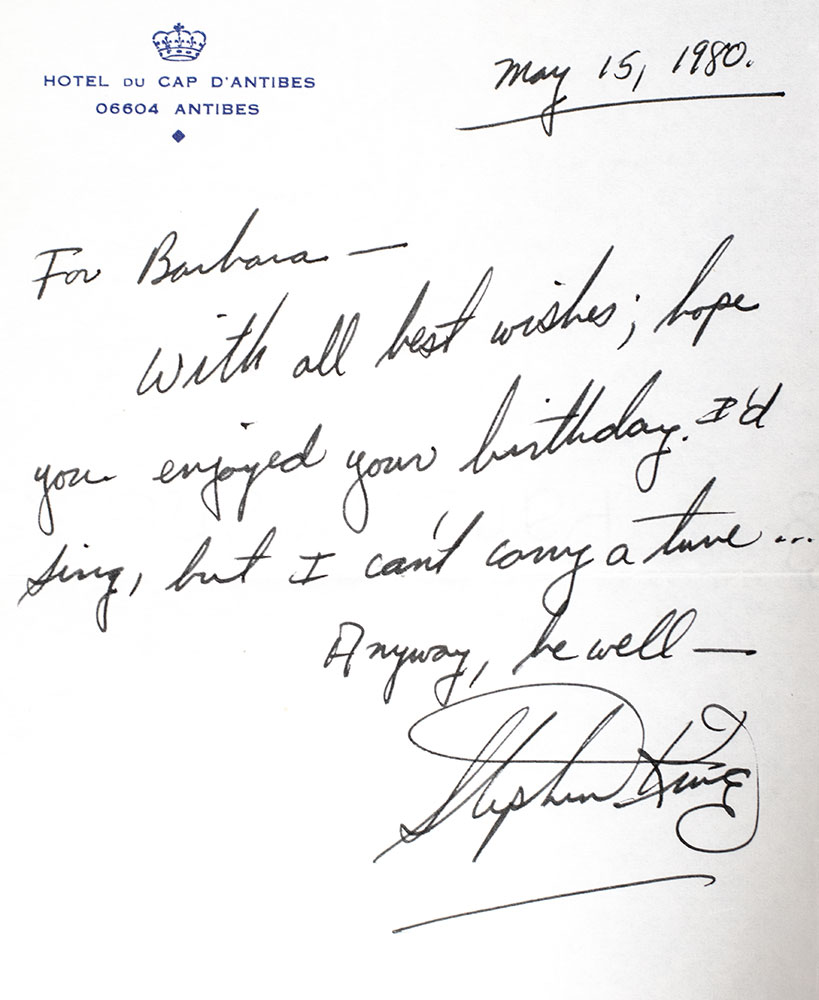 HOTEL DU CAP D'ANTIBES
06604 ANTIBES
May 15, 1980.
For Barbara —
With all best wishes; hope
you enjoyed your birthday. I'd
sing, but I can't carry a tune ...
Anyway, be well —
Stephen King